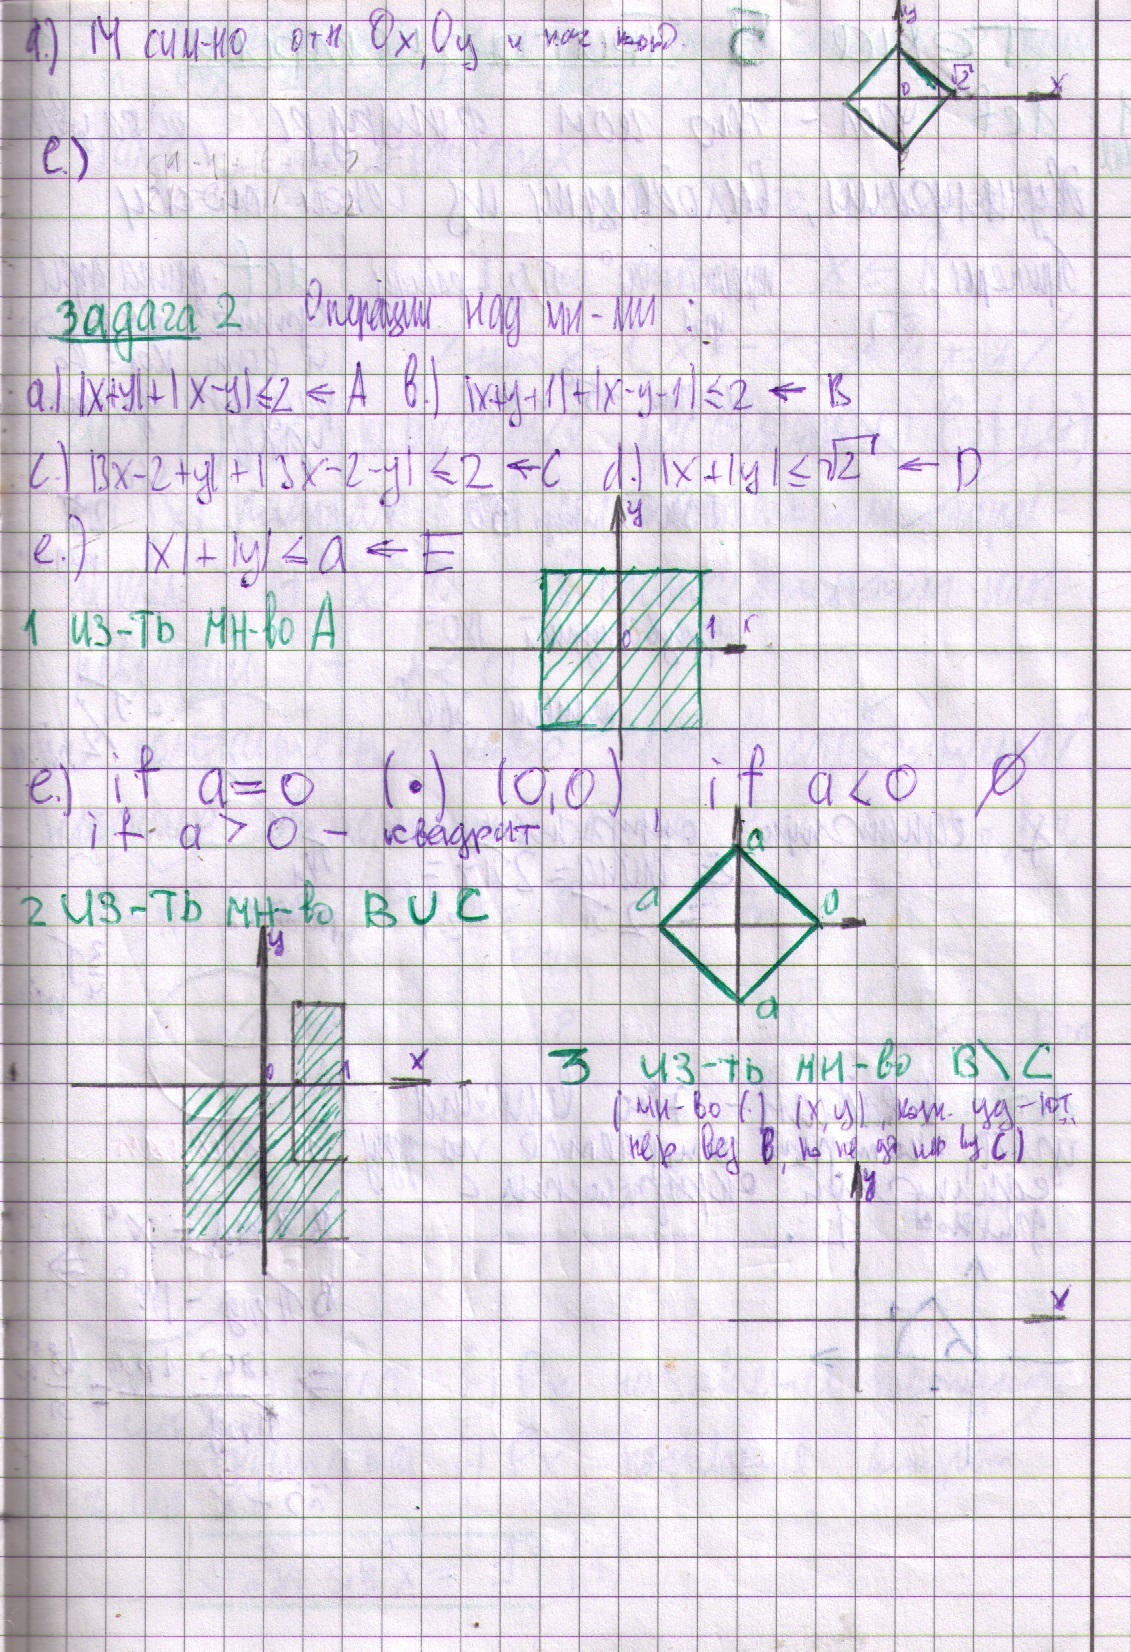 d.) М сим-но отн Ox, Oy и нач. коорд.
y
√2
0
x
e.)
Задача 2 Операции над мн-ми :
a.) |x+y|+|x-y|≤2 ← A b.) |x+y+1|+|x-y-1|≤2 ← B
c.) |3x-2+y|+|3x-2-y|≤2 ← C d.) |x|+|y|≤√2 ← D
y
e.) |x|+|y|≤a ← E
1 из-ть мн-во A
0 1
e.) if a=0 (•) (0,0), if a<0 ∅
if a>0 – квадрат
a
a
a
2 из-ть мн-во B∪C
y
0 1 x
3 из-ть мн-во B\C
(мн-во (.) (x,y), кот. уд-ют
нер-ву B, но не C)
y
x